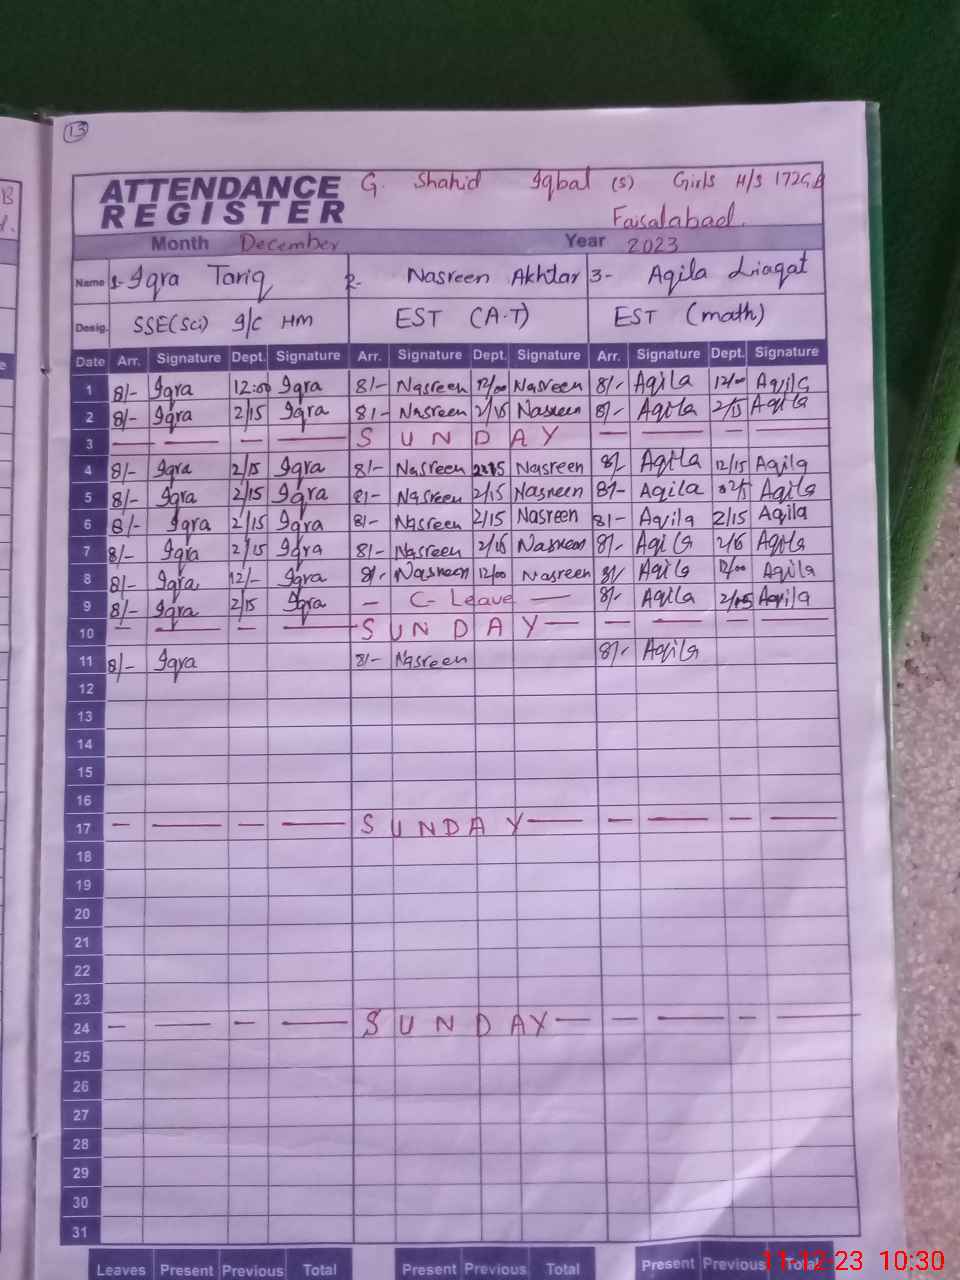 13
B
ATTENDANCE REGISTER G. Shahid Iqbal (S) Girls H/S 172GB
Faisalabad.
Month December Year 2023
Name 1- Iqra Tariq 2- Nasreen Akhtar 3- Aqila Liaqat
Desig. SSE(Sci) I/C HM EST (A.T) EST (math)
Date Arr. Signature Dept. Signature Arr. Signature Dept. Signature Arr. Signature Dept. Signature
1 8/- Iqra 12:00 Iqra 8/- Nasreen 12/00 Nasreen 8/- Aqila 12/00 Aqila
2 8/- Iqra 2/15 Iqra 8/- Nasreen 2/15 Nasreen 8/- Aqila 2/15 Aqila
3 — — — — S U N D A Y — — — —
4 8/- Iqra 2/15 Iqra 8/- Nasreen Nasreen 8/- Aqila 12/15 Aqila
5 8/- Iqra 2/15 Iqra 8/- Nasreen 2/15 Nasreen 8/- Aqila Aqila
6 8/- Iqra 2/15 Iqra 8/- Nasreen 2/15 Nasreen 8/- Aqila 2/15 Aqila
7 8/- Iqra 2/15 Iqra 8/- Nasreen 2/15 Nasreen 8/- Aqila 2/15 Aqila
8 8/- Iqra 12/- Iqra 8/- Nasreen 12/00 Nasreen 8/- Aqila 12/00 Aqila
9 8/- Iqra 2/15 Iqra — C- Leave — 8/- Aqila 2/15 Aqila
10 — — — — S U N D A Y — — — — —
11 8/- Iqra 8/- Nasreen 8/- Aqila
12
13
14
15
16
17 — — — — S U N D A Y — — — — —
18
19
20
21
22
23
24 — — — — S U N D A Y — — — — —
25
26
27
28
29
30
31
Leaves Present Previous Total Present Previous Total Present Previous Total
11-12-23 10:30